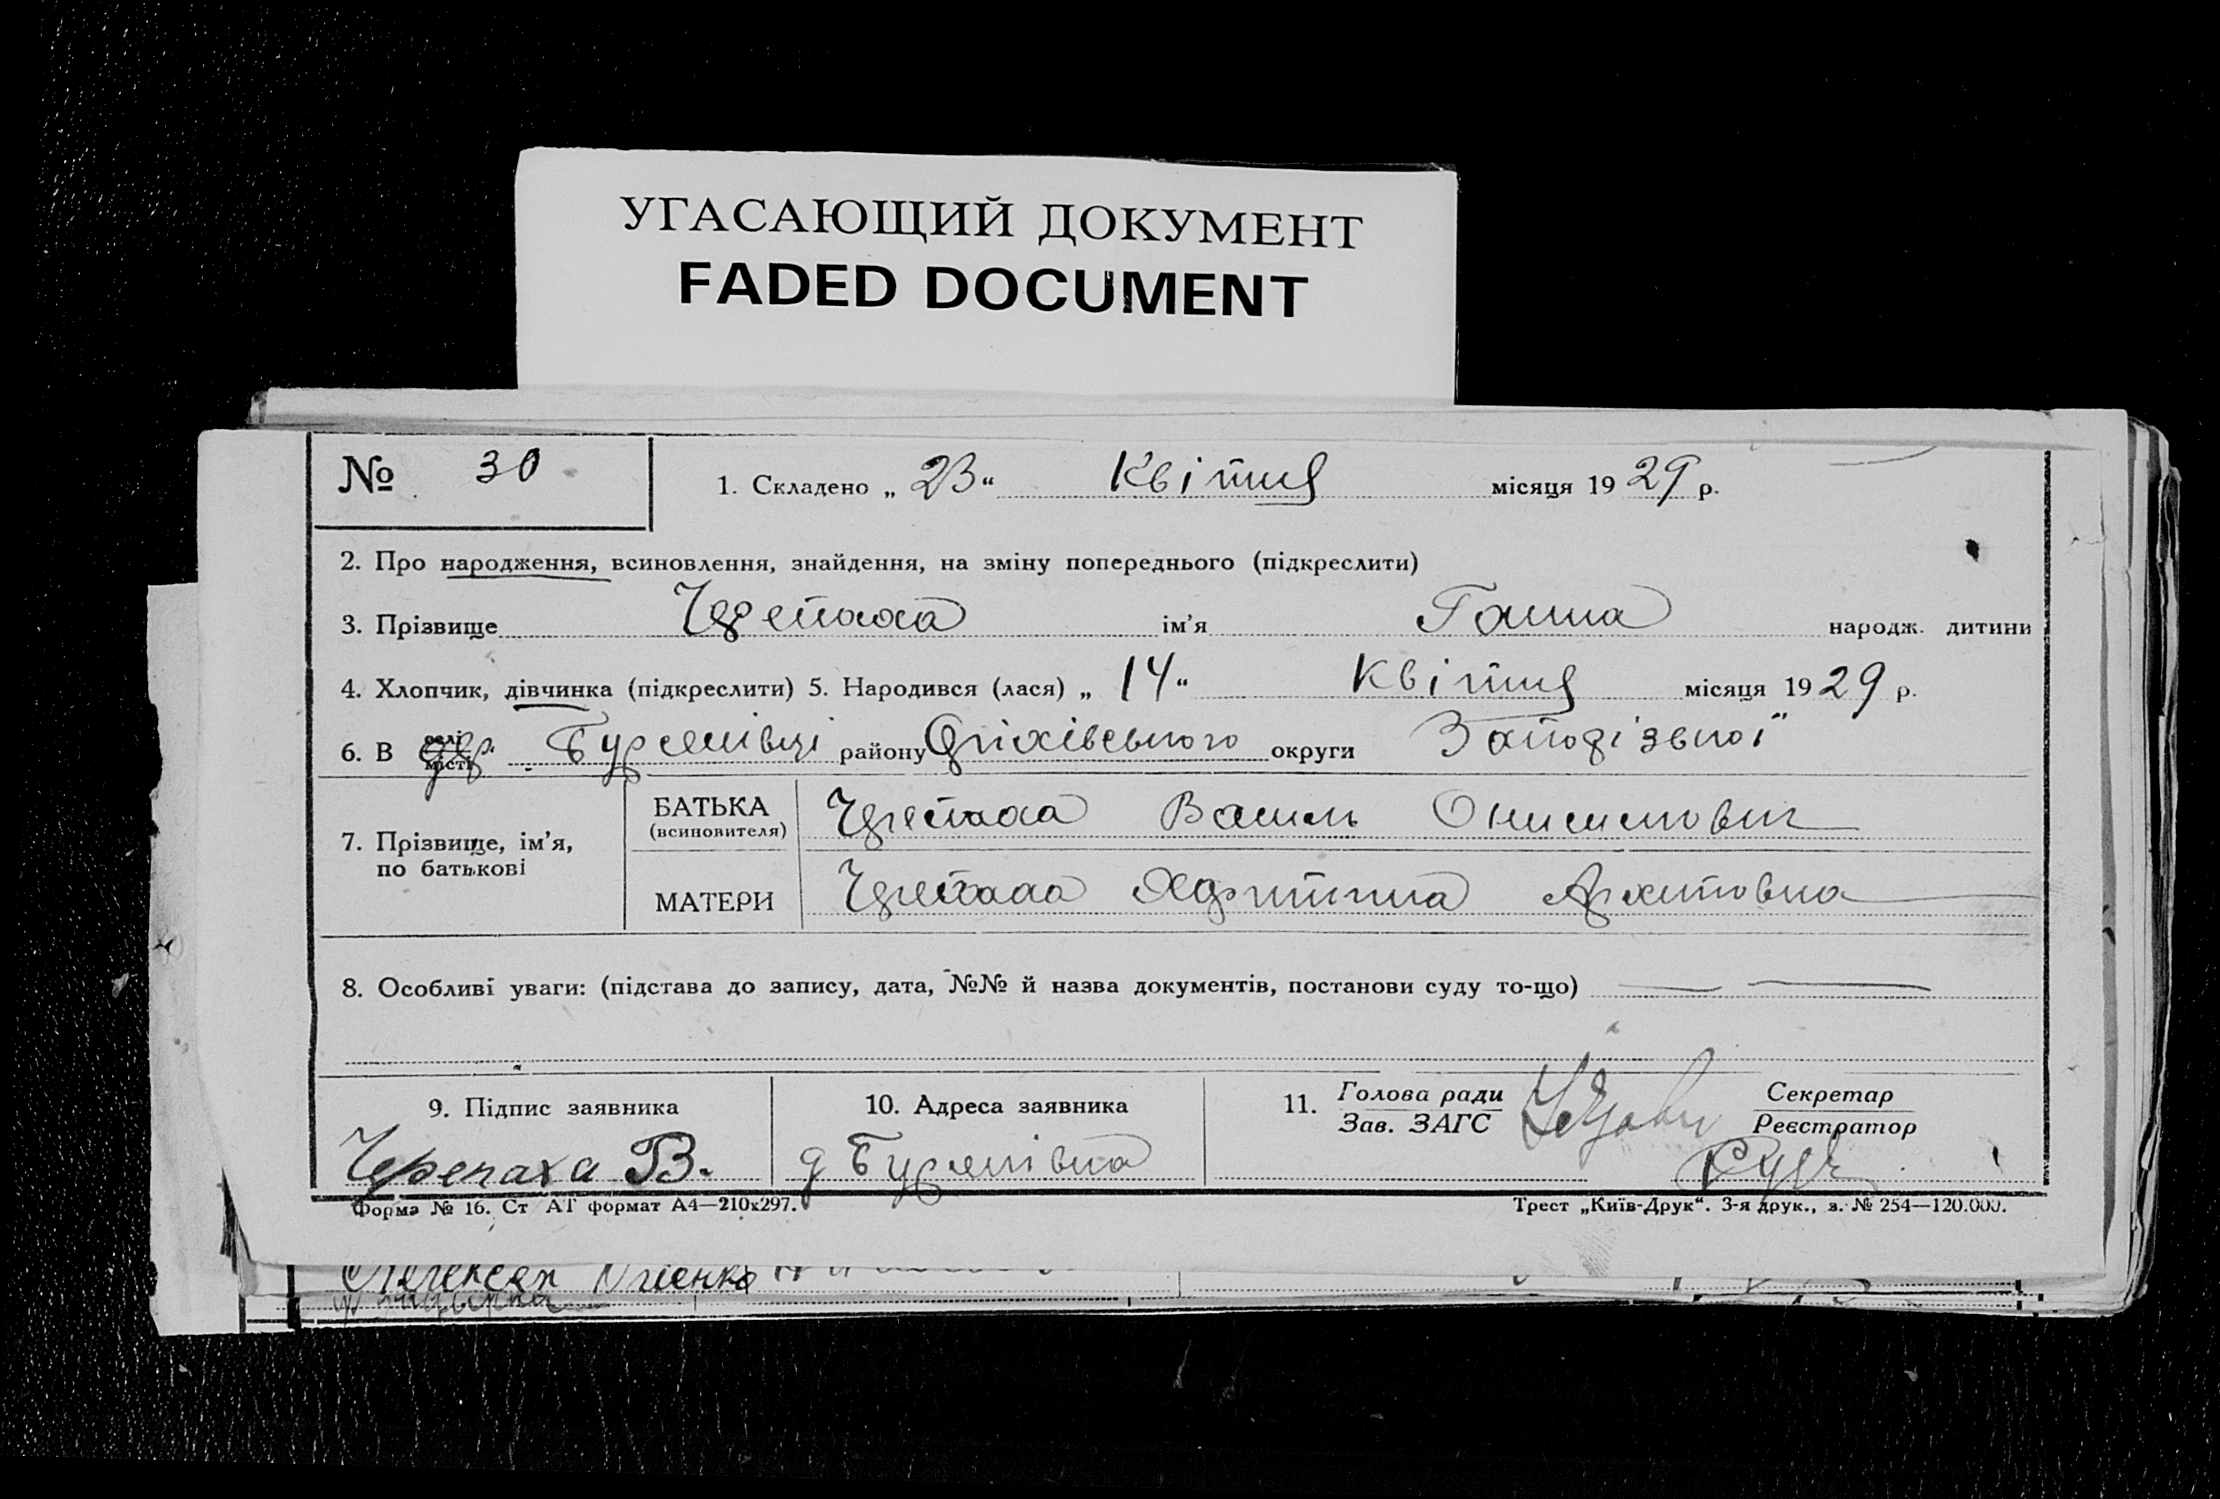 УГАСАЮЩИЙ ДОКУМЕНТ
FADED DOCUMENT
№ 30
1. Складено „ 23 “ Квітня місяця 1929 р.
2. Про народження, всиновлення, знайдення, на зміну попереднього (підкреслити)
3. Прізвище Черепаха ім’я Ганна народж. дитини
4. Хлопчик, дівчинка (підкреслити) 5. Народився (лася) „ 14 “ Квітня місяця 1929 р.
6. В селі місті дер. Бурлянівці району Оріхівського округи Запорізької
7. Прізвище, ім’я, по батькові
БАТЬКА (всиновителя) Черепаха Василь Онисимович
МАТЕРИ Черепаха Явритина Архиповна
8. Особливі уваги: (підстава до запису, дата, №№ й назва документів, постанови суду то-що)
9. Підпис заявника
10. Адреса заявника
11. Голова ради Зав. ЗАГС
Секретар Реєстратор
Черепаха В.
Форма № 16. Ст АТ формат А4—210х297.
Трест „Київ-Друк“. 3-я друк., з. № 254—120.000.